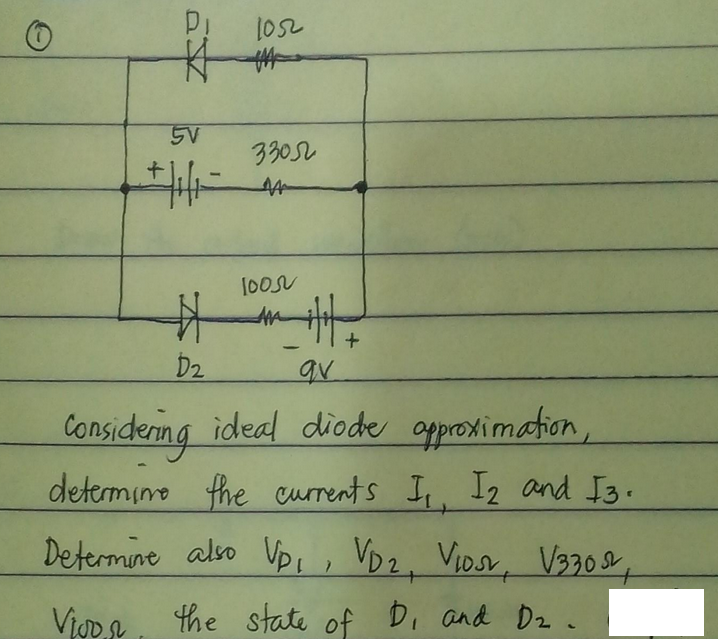 ①
D1 10Ω
5V
330Ω
+ -
100Ω
- +
D2 9V
Considering ideal diode approximation,
determine the currents I1, I2 and I3.
Determine also VD1, VD2, V10Ω, V330Ω,
V100Ω, the state of D1 and D2.